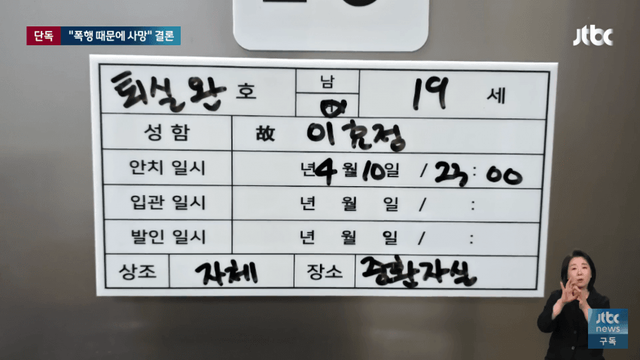 단독 "폭행 때문에 사망" 결론
jtbc
퇴실완 호 남 여 19 세
성함 故 이효정
안치 일시 년 4 월 10 일 / 23 : 00
입관 일시 년 월 일 / :
발인 일시 년 월 일 / :
상조 자체 장소 중환자실
jtbc
news
구독